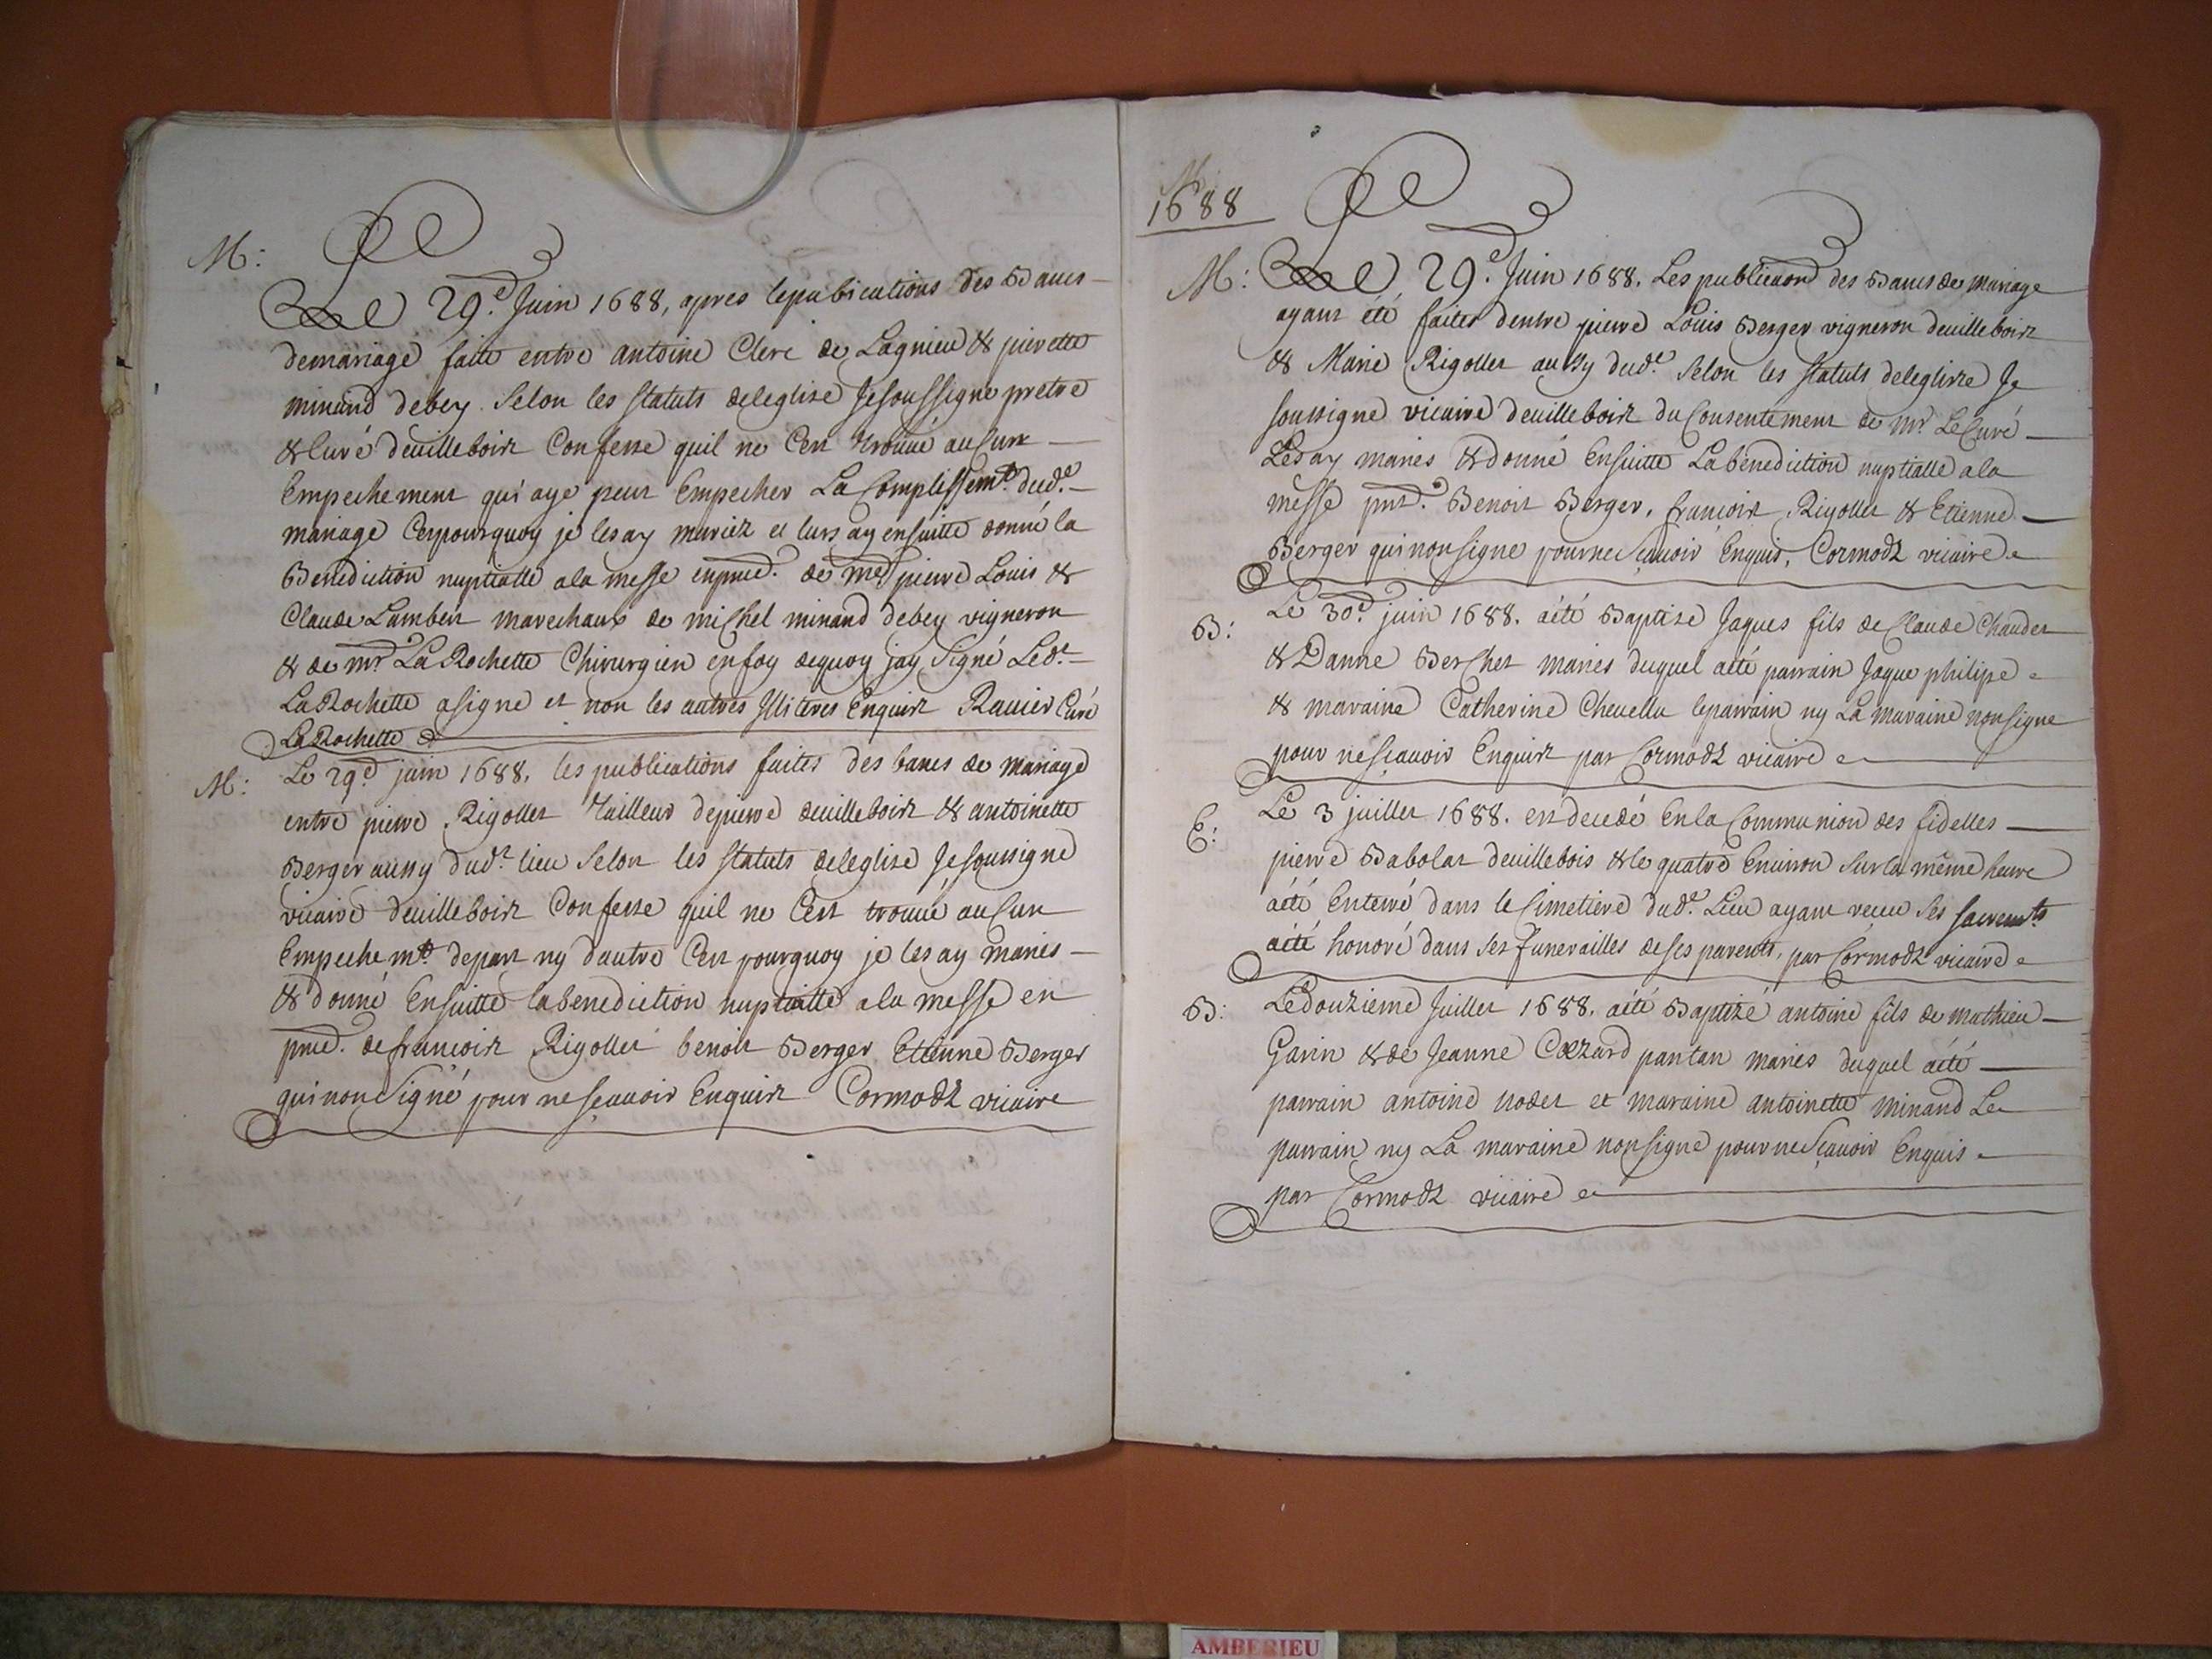 M:
Le 29e. Juin 1688, apres lepublications Des Bancs
demariage faite entre antoine Clerc de Lagnieu & pierette
minand debey. Selon les statuts deleglise Jesoussigne pretre
& Curé deuilleboix Confesse quil ne Cest trouué auCun
Empechement qui aye peut Empecher LaComplissemt. dude.
mariage Cespourquoy je lesay mariez et lurs ay ensuitte donné la
Benediction nuptialle ala messe enpnce. de me. pierre Louis &
Claude Lambert marechaux de miChel minand debey vigneron
& de mr. LaRochette Chirurgien enfoy dequoy jay Signé Lede.
LaRochette asigne et non les autres Illiteres Enquix Rauier Curé
LaRochette
M:
Le 29e. juin 1688. les publications faites des bancs de mariage
entre pierre Rigollet tailleur depierre deuilleboix & antoinette
Berger aussy dude. lieu Selon les statuts deleglise Jesoussigne
vicaire deuilleboix Confesse quil ne Cest trouué auCun
Empechemt. depart ny dautre Cest pourquoy je lesay mariés
& donné Ensuitte labenediction nuptialle ala messe en
pnce. defrancoix Rigollet benoit Berger Etienne Berger
quinonSigné pour nesçauoir Enquix Cormodz vicaire
1688
M:
Le 29e. Juin 1688. Les publicaons des Bancs de mariage
ayant été faites dentre pierre Louis Berger vigneron deuilleboix
& Marie Rigollet aussy dude. Selon les statuts deleglise Je
soussigne vicaire deuilleboix duConsentement de mr. LeCuré
Lesay mariés & donné Ensuitte Labenediction nuptialle ala
messe pnt. Benoit Berger, francoix Rigollet & Etienne
Berger quinonsigne pournesçauoir Enquis, Cormodz vicaire
B:
Le 30e. juin 1688. aété Baptize Jaques fils de Claude Chaudet
& Danne BerChet mariés duquel aété parrain Jaque philipe
& maraine Catherine Cheuellu leparrain ny La maraine nonsigne
pour nesçauoir Enquix par Cormodz vicaire
E:
Le 3 juillet 1688. est decedé Enla Communion des fidelles
pierre Babolat deuillebois & le quatre Enuiron Sur la même heure
aété Enterré dans le Cimetiere dude. Lieu ayant receu ses sacremts
aété honoré dans ses funerailles deses parents, par Cormodz vicaire
B:
Ledouzieme Juillet 1688. aété Baptizé antoine fils de mathieu
Garin & de Jeanne Cozard pantan mariés duquel aété
parrain antoine nodet et maraine antoinette minand Le
parrain ny La maraine nonsigne pournesçauoir Enquis
par Cormodz vicaire
AMBERIEU